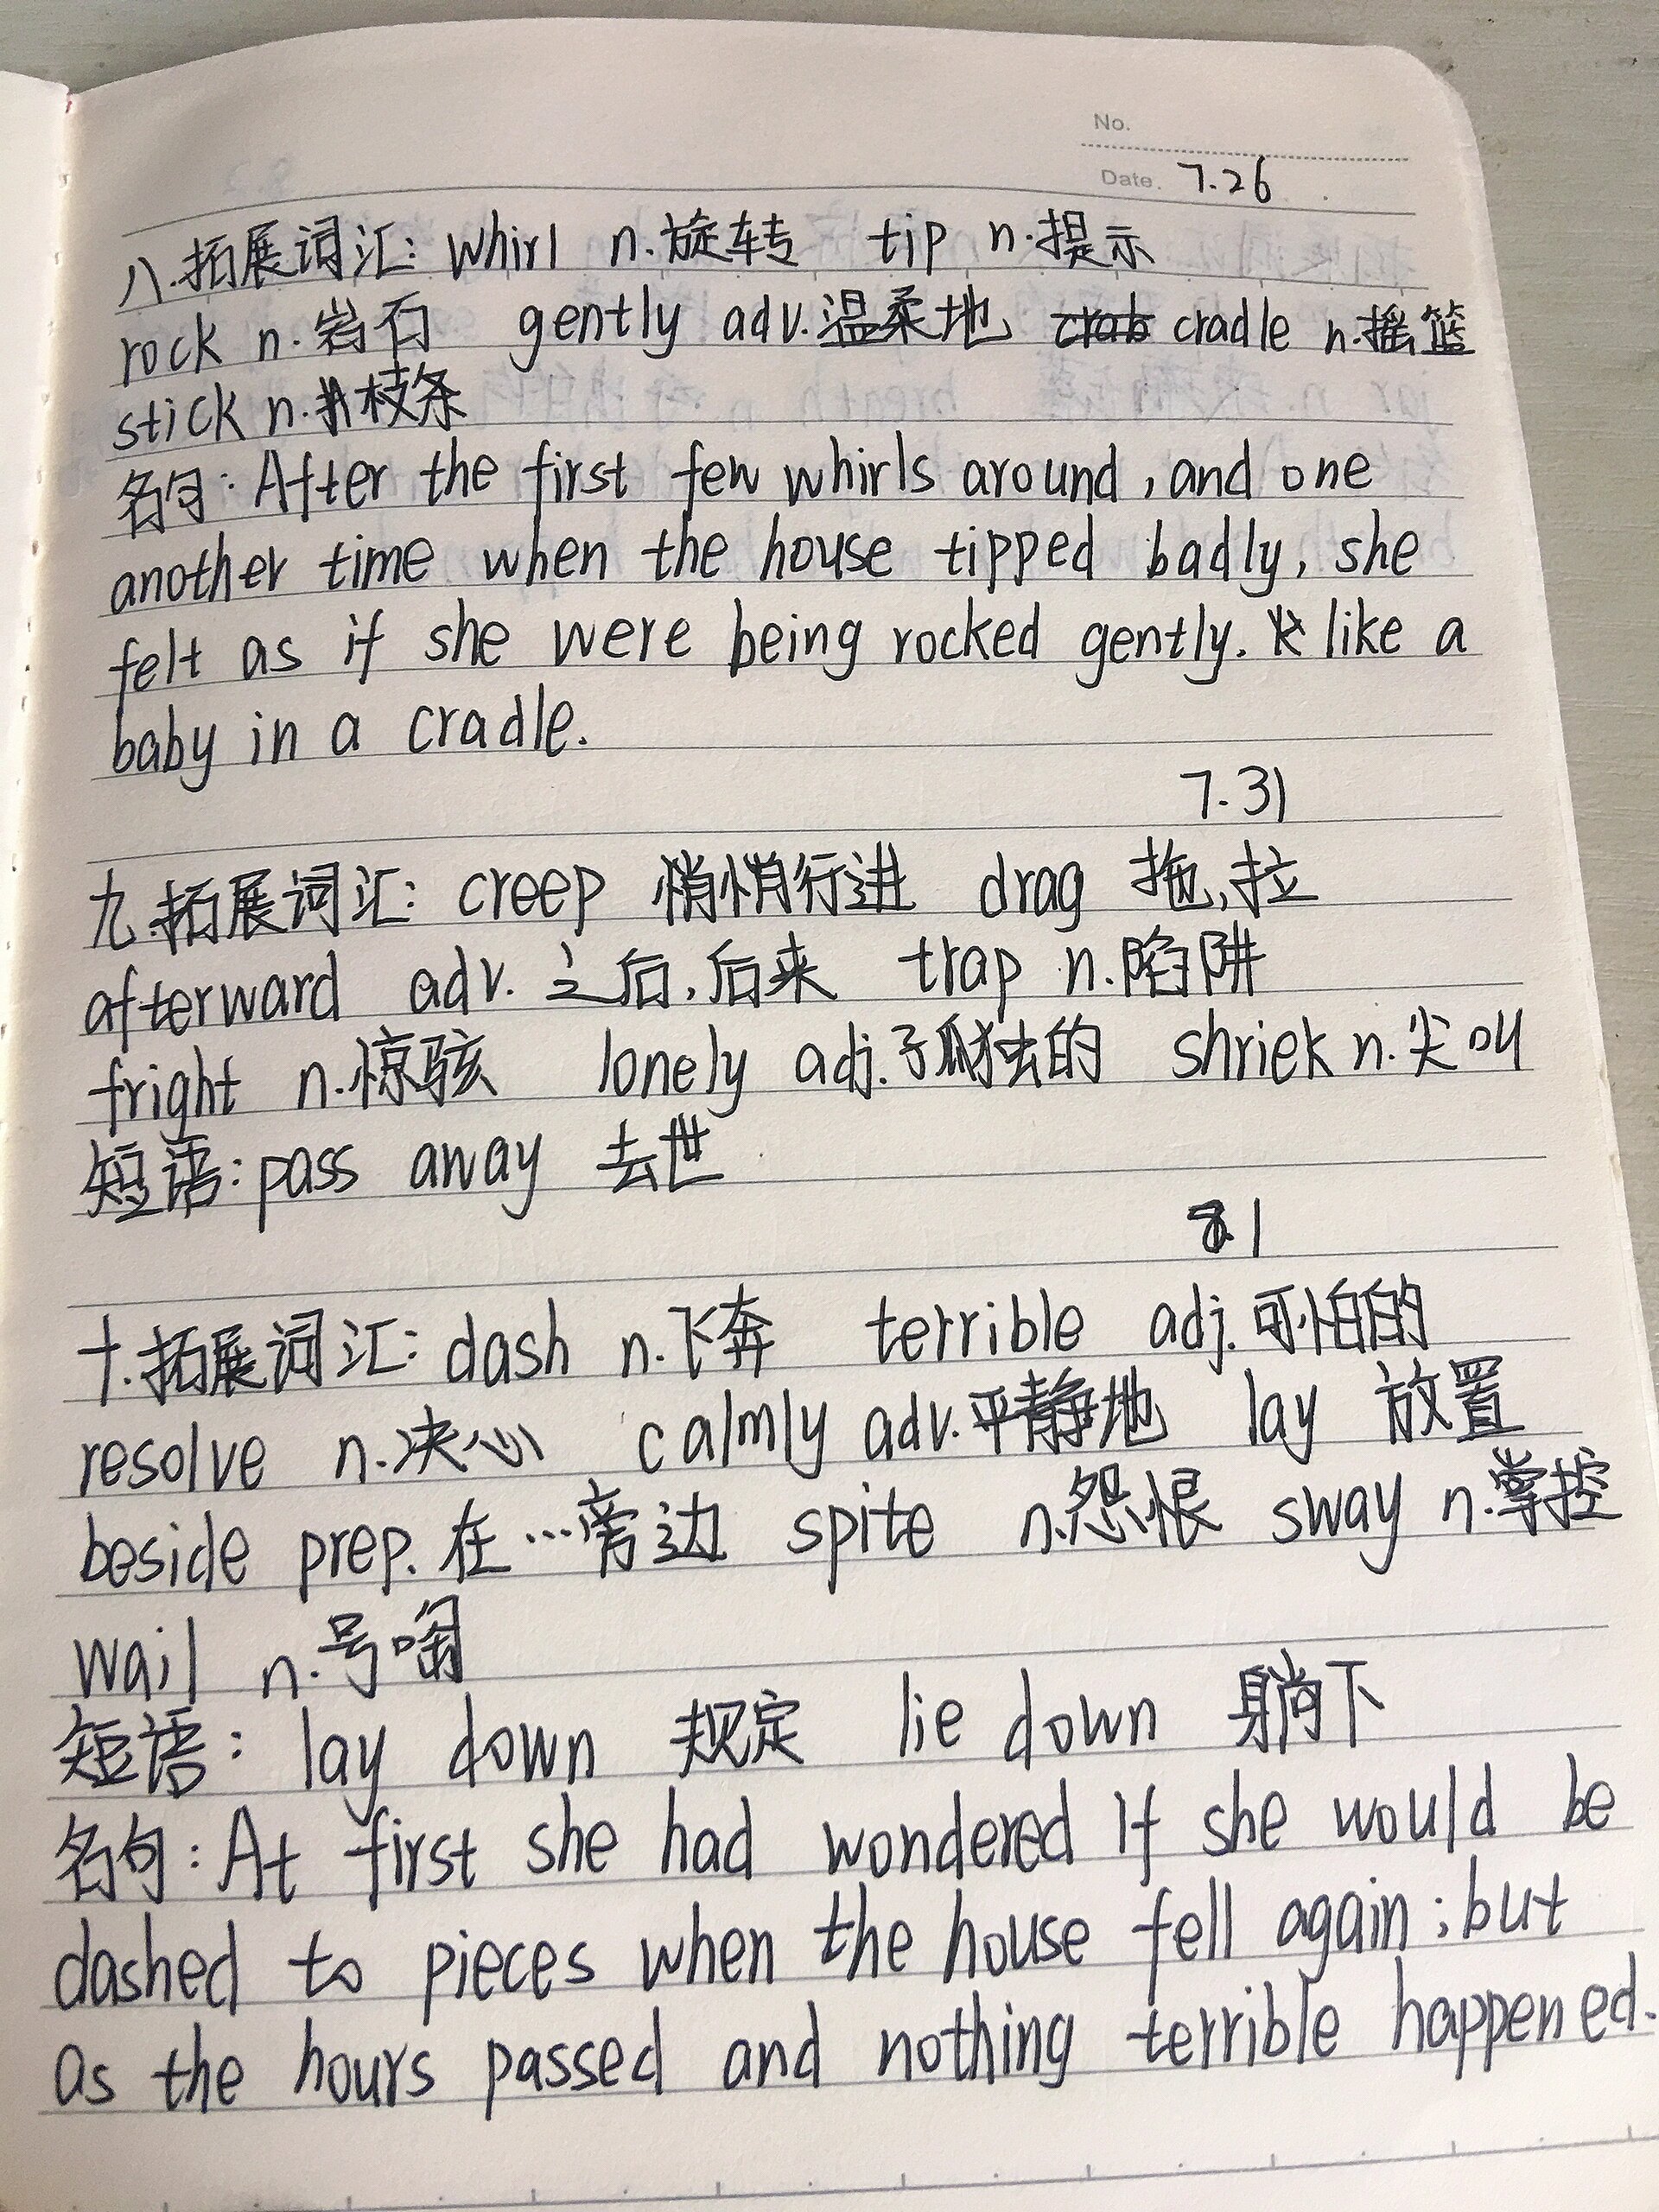 No.
Date. 7.26
八.拓展词汇: whirl n.旋转 tip n.提示
rock n.岩石 gently adv.温柔地 crab cradle n.摇篮
stick n.枝条
名句: After the first few whirls around, and one
another time when the house tipped badly, she
felt as if she were being rocked gently. like a
baby in a cradle.
7.31
九.拓展词汇: creep 悄悄行进 drag 拖,拉
afterward adv. 之后,后来 trap n.陷阱
fright n.惊骇 lonely adj.孤独的 shriek n.尖叫
短语: pass away 去世
8.1
十.拓展词汇: dash n.飞奔 terrible adj.可怕的
resolve n.决心 calmly adv.平静地 lay 放置
beside prep.在…旁边 spite n.怨恨 sway n.掌控
wail n.号啕
短语: lay down 规定 lie down 躺下
名句: At first she had wondered if she would be
dashed to pieces when the house fell again; but
as the hours passed and nothing terrible happened.